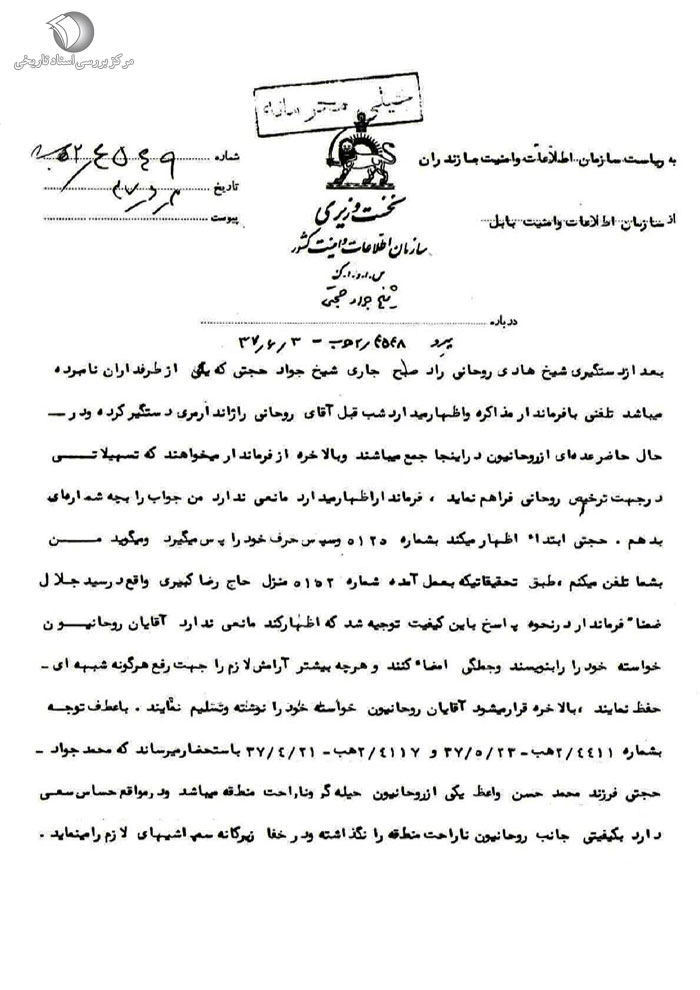 مرکز بررسی اسناد تاریخی
خیلی محرمانه
به ریاست سازمان اطلاعات وامنیت مازندران
از سازمان اطلاعات وامنیت بابل
نخست وزیری
سازمان اطلاعات و امنیت کشور
س.ا.و.ا.ک
شماره ۲/۴۵۴۹هـ ب
تاریخ
پیوست
شیخ جواد حجتی
درباره
پیرو ۲/۴۵۴۸هـب - ۳۷/۶/۳
بعد ازدستگیری شیخ هادی روحانی راد صبح جاری شیخ جواد حجتی که یکی از طرفداران نامبرده
میباشد تلفنی بافرماندار مذاکره واظهارمیدارد شب قبل آقای روحانی راژاندارمری دستگیر کرده ودر
حال حاضرعده‌ای ازروحانیون دراینجا جمع میباشند وبالاخره از فرماندار میخواهند که تسهیلاتی
درجهت ترخیص روحانی فراهم نماید ، فرمانداراظهارمیدارد مانعی ندارد من جواب رابچه شماره‌ای
بدهم . حجتی ابتداء اظهار میکند بشماره ۵۱۲۵ وسپس حرف خود را پس میگیرد ومیگوید من
بشما تلفن میکنم ،طبق تحقیقاتیکه بعمل آمده شماره ۵۱۵۲ منزل حاج رضا کبیری واقع درسید جلال
ضمنا" فرماندار درنحوه پاسخ باین کیفیت توجیه شد که اظهارکند مانعی ندارد آقایان روحانیون
خواسته خود را رابنویسند وجملگی امضاء کنند و هرچه بیشتر آرامش لازم را جهت رفع هرگونه شبهه ای -
حفظ نمایند ،بالاخره قرارمیشود آقایان روحانیون خواسته خود را نوشته وتسلیم نمایند . باعطف توجه
بشماره ۲/۴۴۱۱هب - ۳۷/۵/۲۳ و ۲/۴۱۱۷هب - ۳۷/۴/۲۱ باستحضارمیرساند که محمد جواد -
حجتی فرزند محمد حسن واعظ یکی ازروحانیون حیله گر وناراحت منطقه میباشد ودرمواقع حساس سعی
دارد بکیفیتی جانب روحانیون ناراحت منطقه را نگذاشته ودر خفا زیرکانه سمپاشیهای لازم رامینماید .